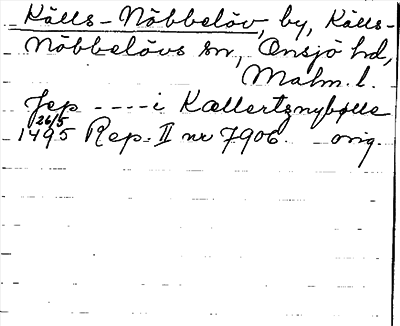 Källs-Nöbbelöv, by, Källs-
Nöbbelövs sn, Onsjö hd,
Malm. l.
Jep ---- i Kællertznybølle
26/5
1495 Rep. II nr 7906 orig.